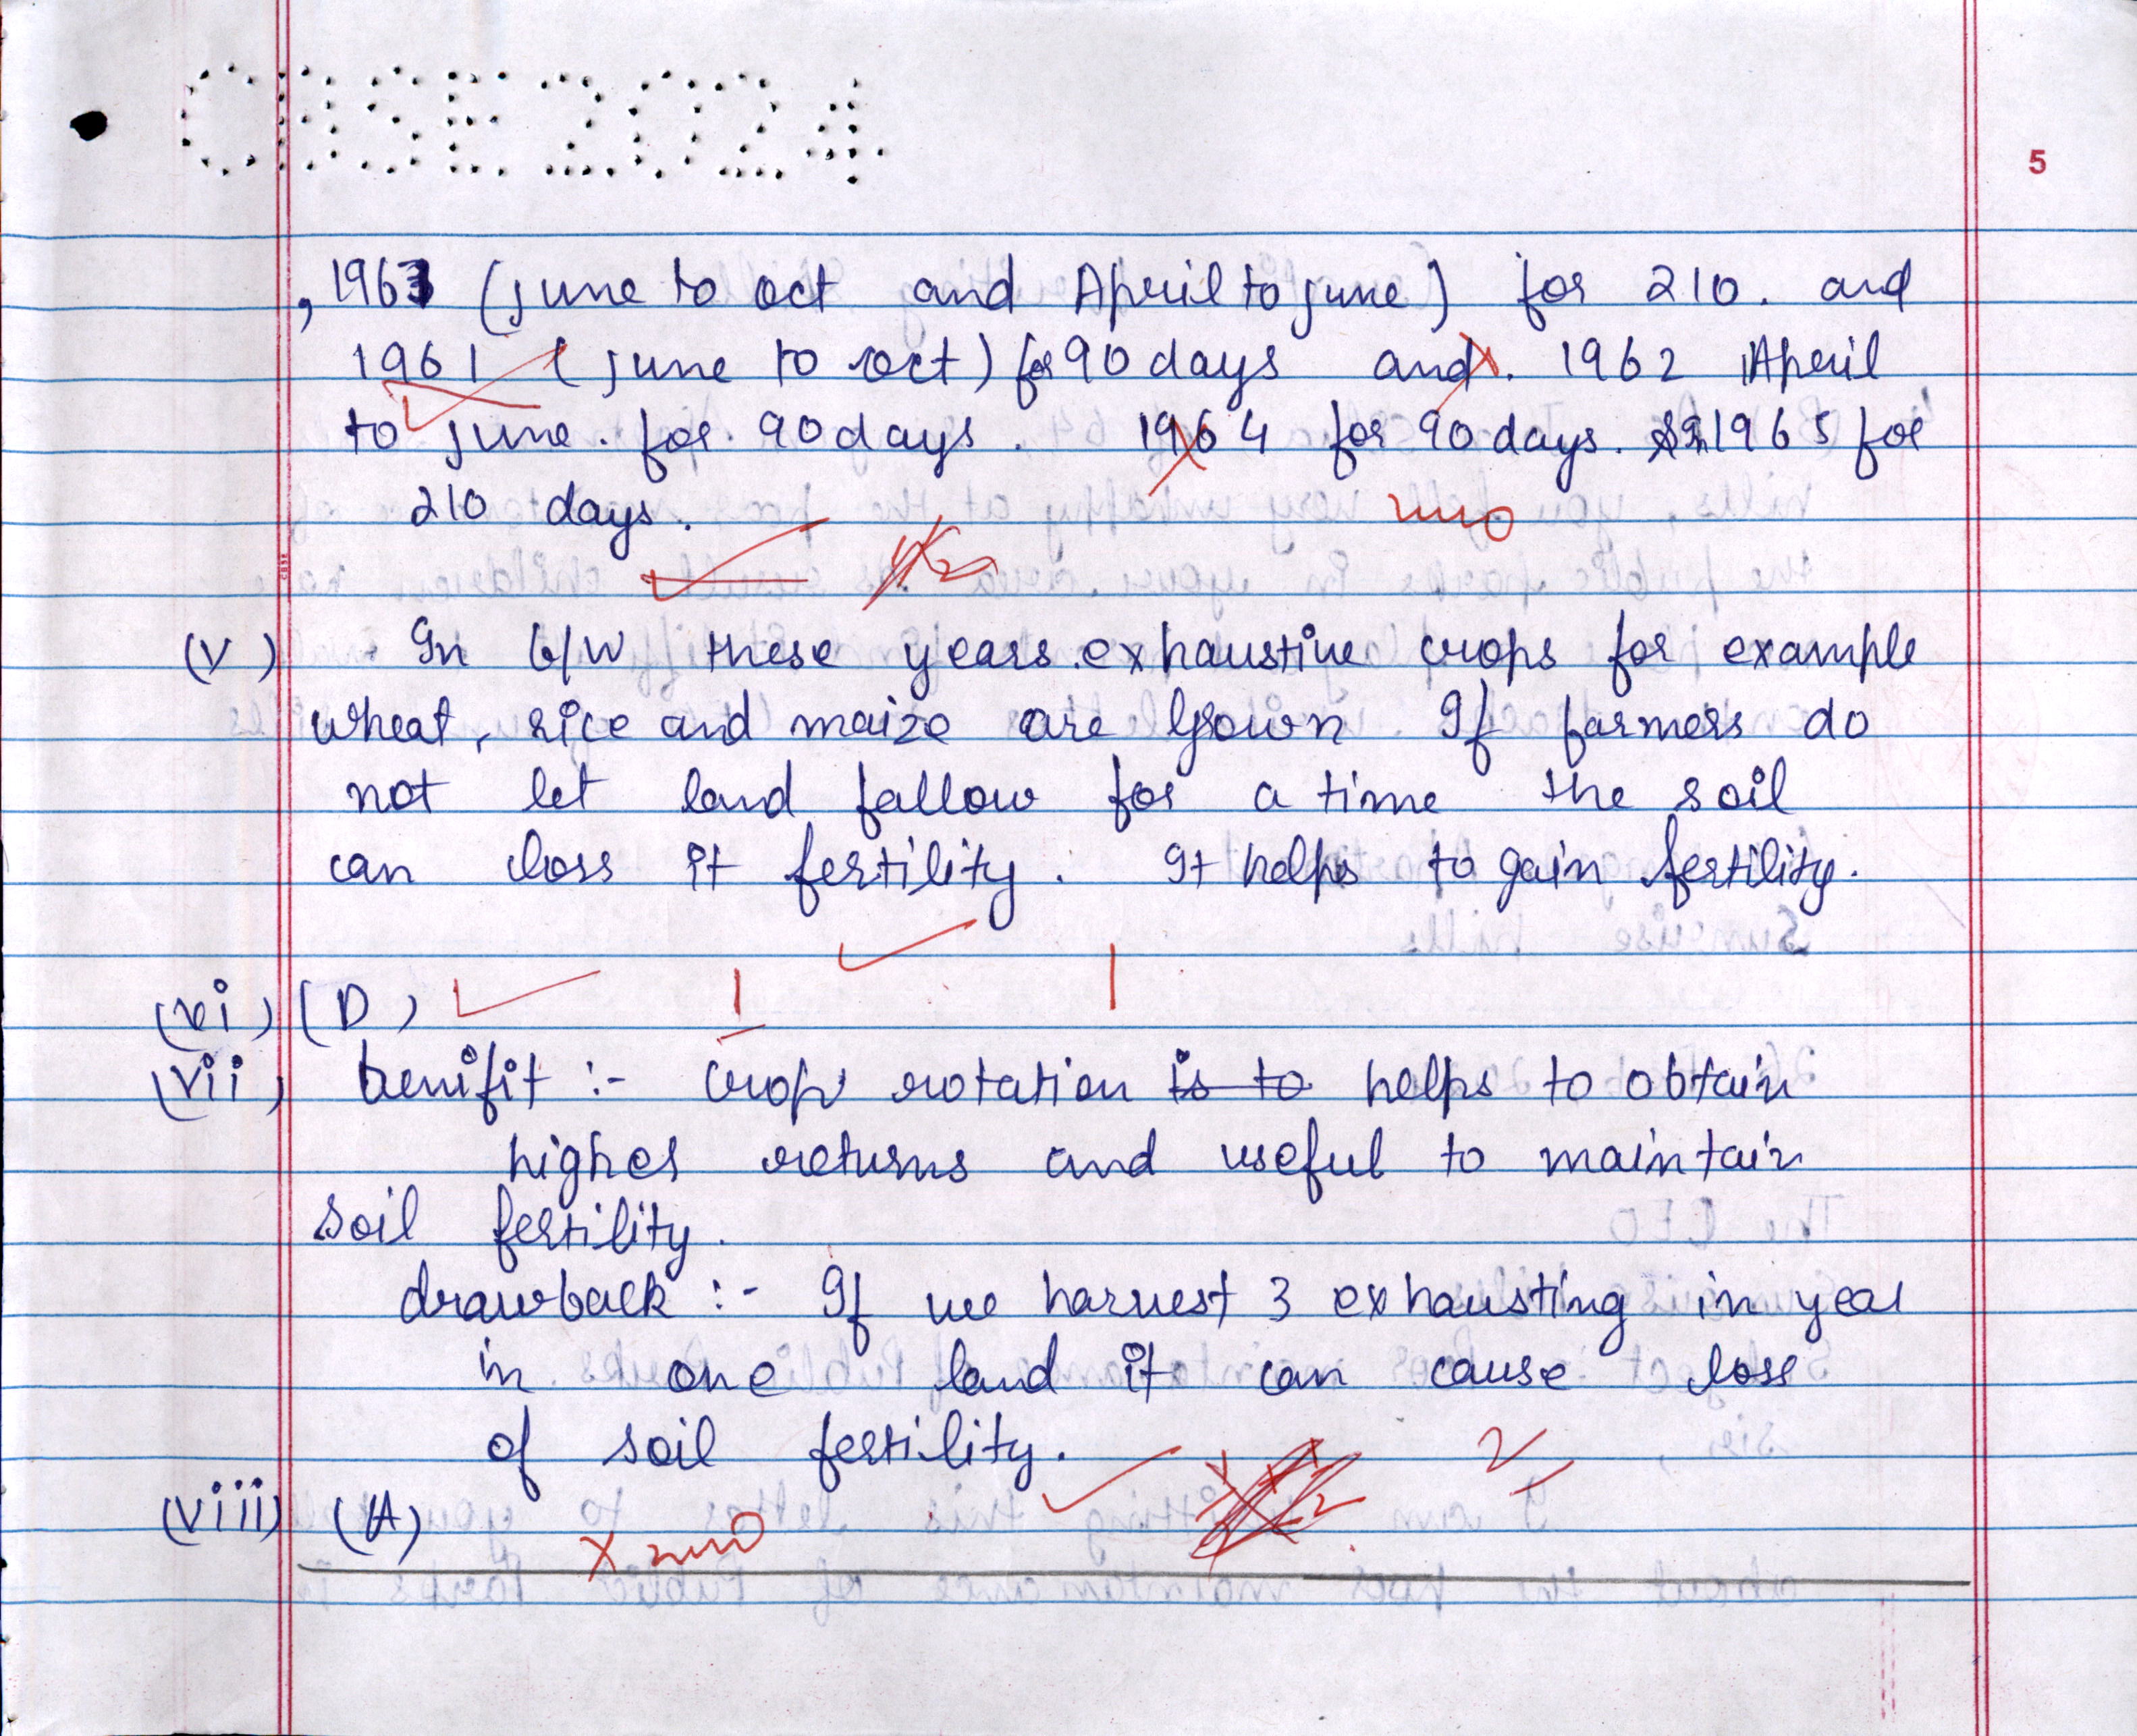 CBSE 2024
5
, 1963 (june to oct and April to june) for 210. and
1961 (june to oct) for 90 days and. 1962 April
to june. for 90 days. 1964 for 90 days. 1965 for
210 days.
zero
(v) In b/w these years exhaustive crops for example
wheat, rice and maize are Grown. If farmers do
not let land fallow for a time the soil
can loss it fertility. It helps to gain fertility.
1 1
(vi) (D)
(vii) benifit :- crop rotation is to helps to obtain
higher returns and useful to maintain
soil fertility.
drawback :- If we harvest 3 exhausting in year
in one land it can cause loss
of soil fertility.
2
(viii) (A)
zero